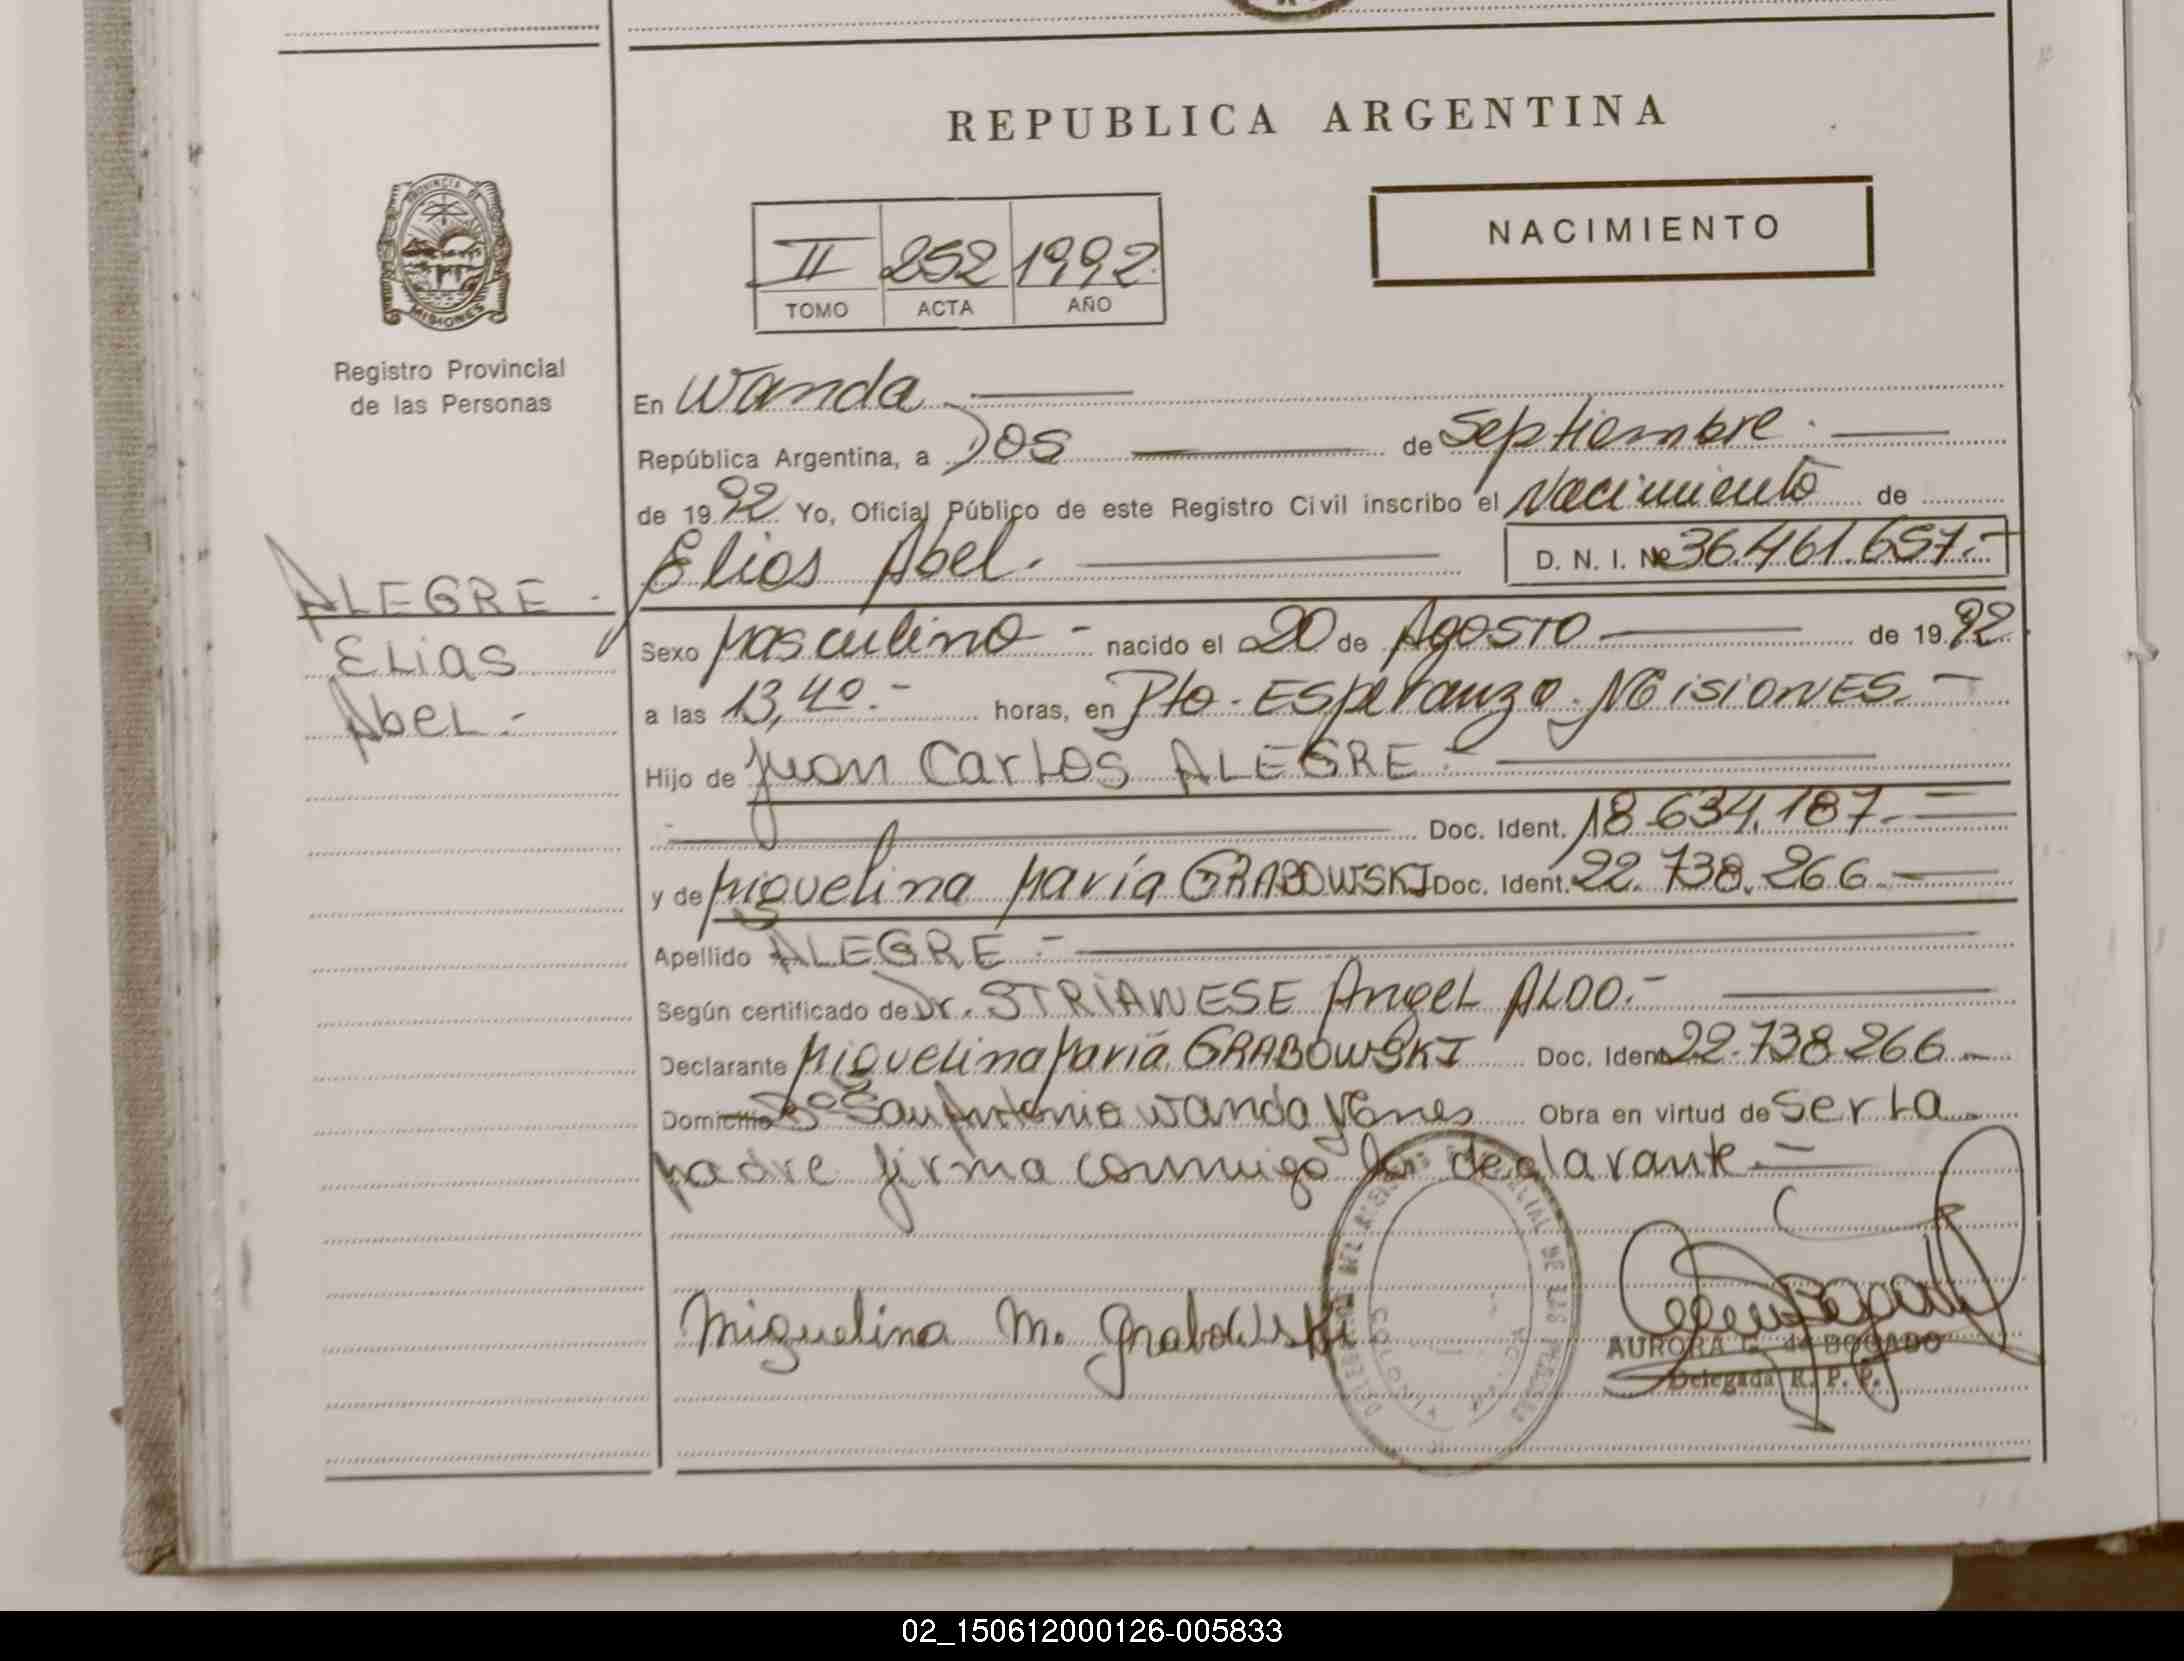 REPUBLICA ARGENTINA
PROVINCIA DE MISIONES
Registro Provincial
de las Personas
NACIMIENTO
II 252 1992
TOMO ACTA AÑO
En Wanda
República Argentina, a Dos de Septiembre
de 1992 Yo, Oficial Público de este Registro Civil inscribo el Nacimiento de
Elias Abel. D. N. I. Nº 36.461.657.-
ALEGRE -
Elias
Abel.-
Sexo Masculino - nacido el 20 de Agosto de 1992
a las 13,40.- horas, en Pto. Esperanza. Misiones.-
Hijo de Juan Carlos ALEGRE.-
Doc. Ident. 18.634.187.-
y de Miguelina María GRABOWSKI Doc. Ident. 22.738.266.-
Apellido ALEGRE.-
Según certificado de Dr. STRIANESE Angel ALDO.-
Declarante Miguelina María GRABOWSKI Doc. Ident. 22.738.266.-
Domicilio Bº San Antonio Wanda Mnes Obra en virtud de ser la
madre firma conmigo la declarante.-
Miguelina M. Grabowski
AURORA G. de BOGADO
Delegada R. P. P.
02_150612000126-005833